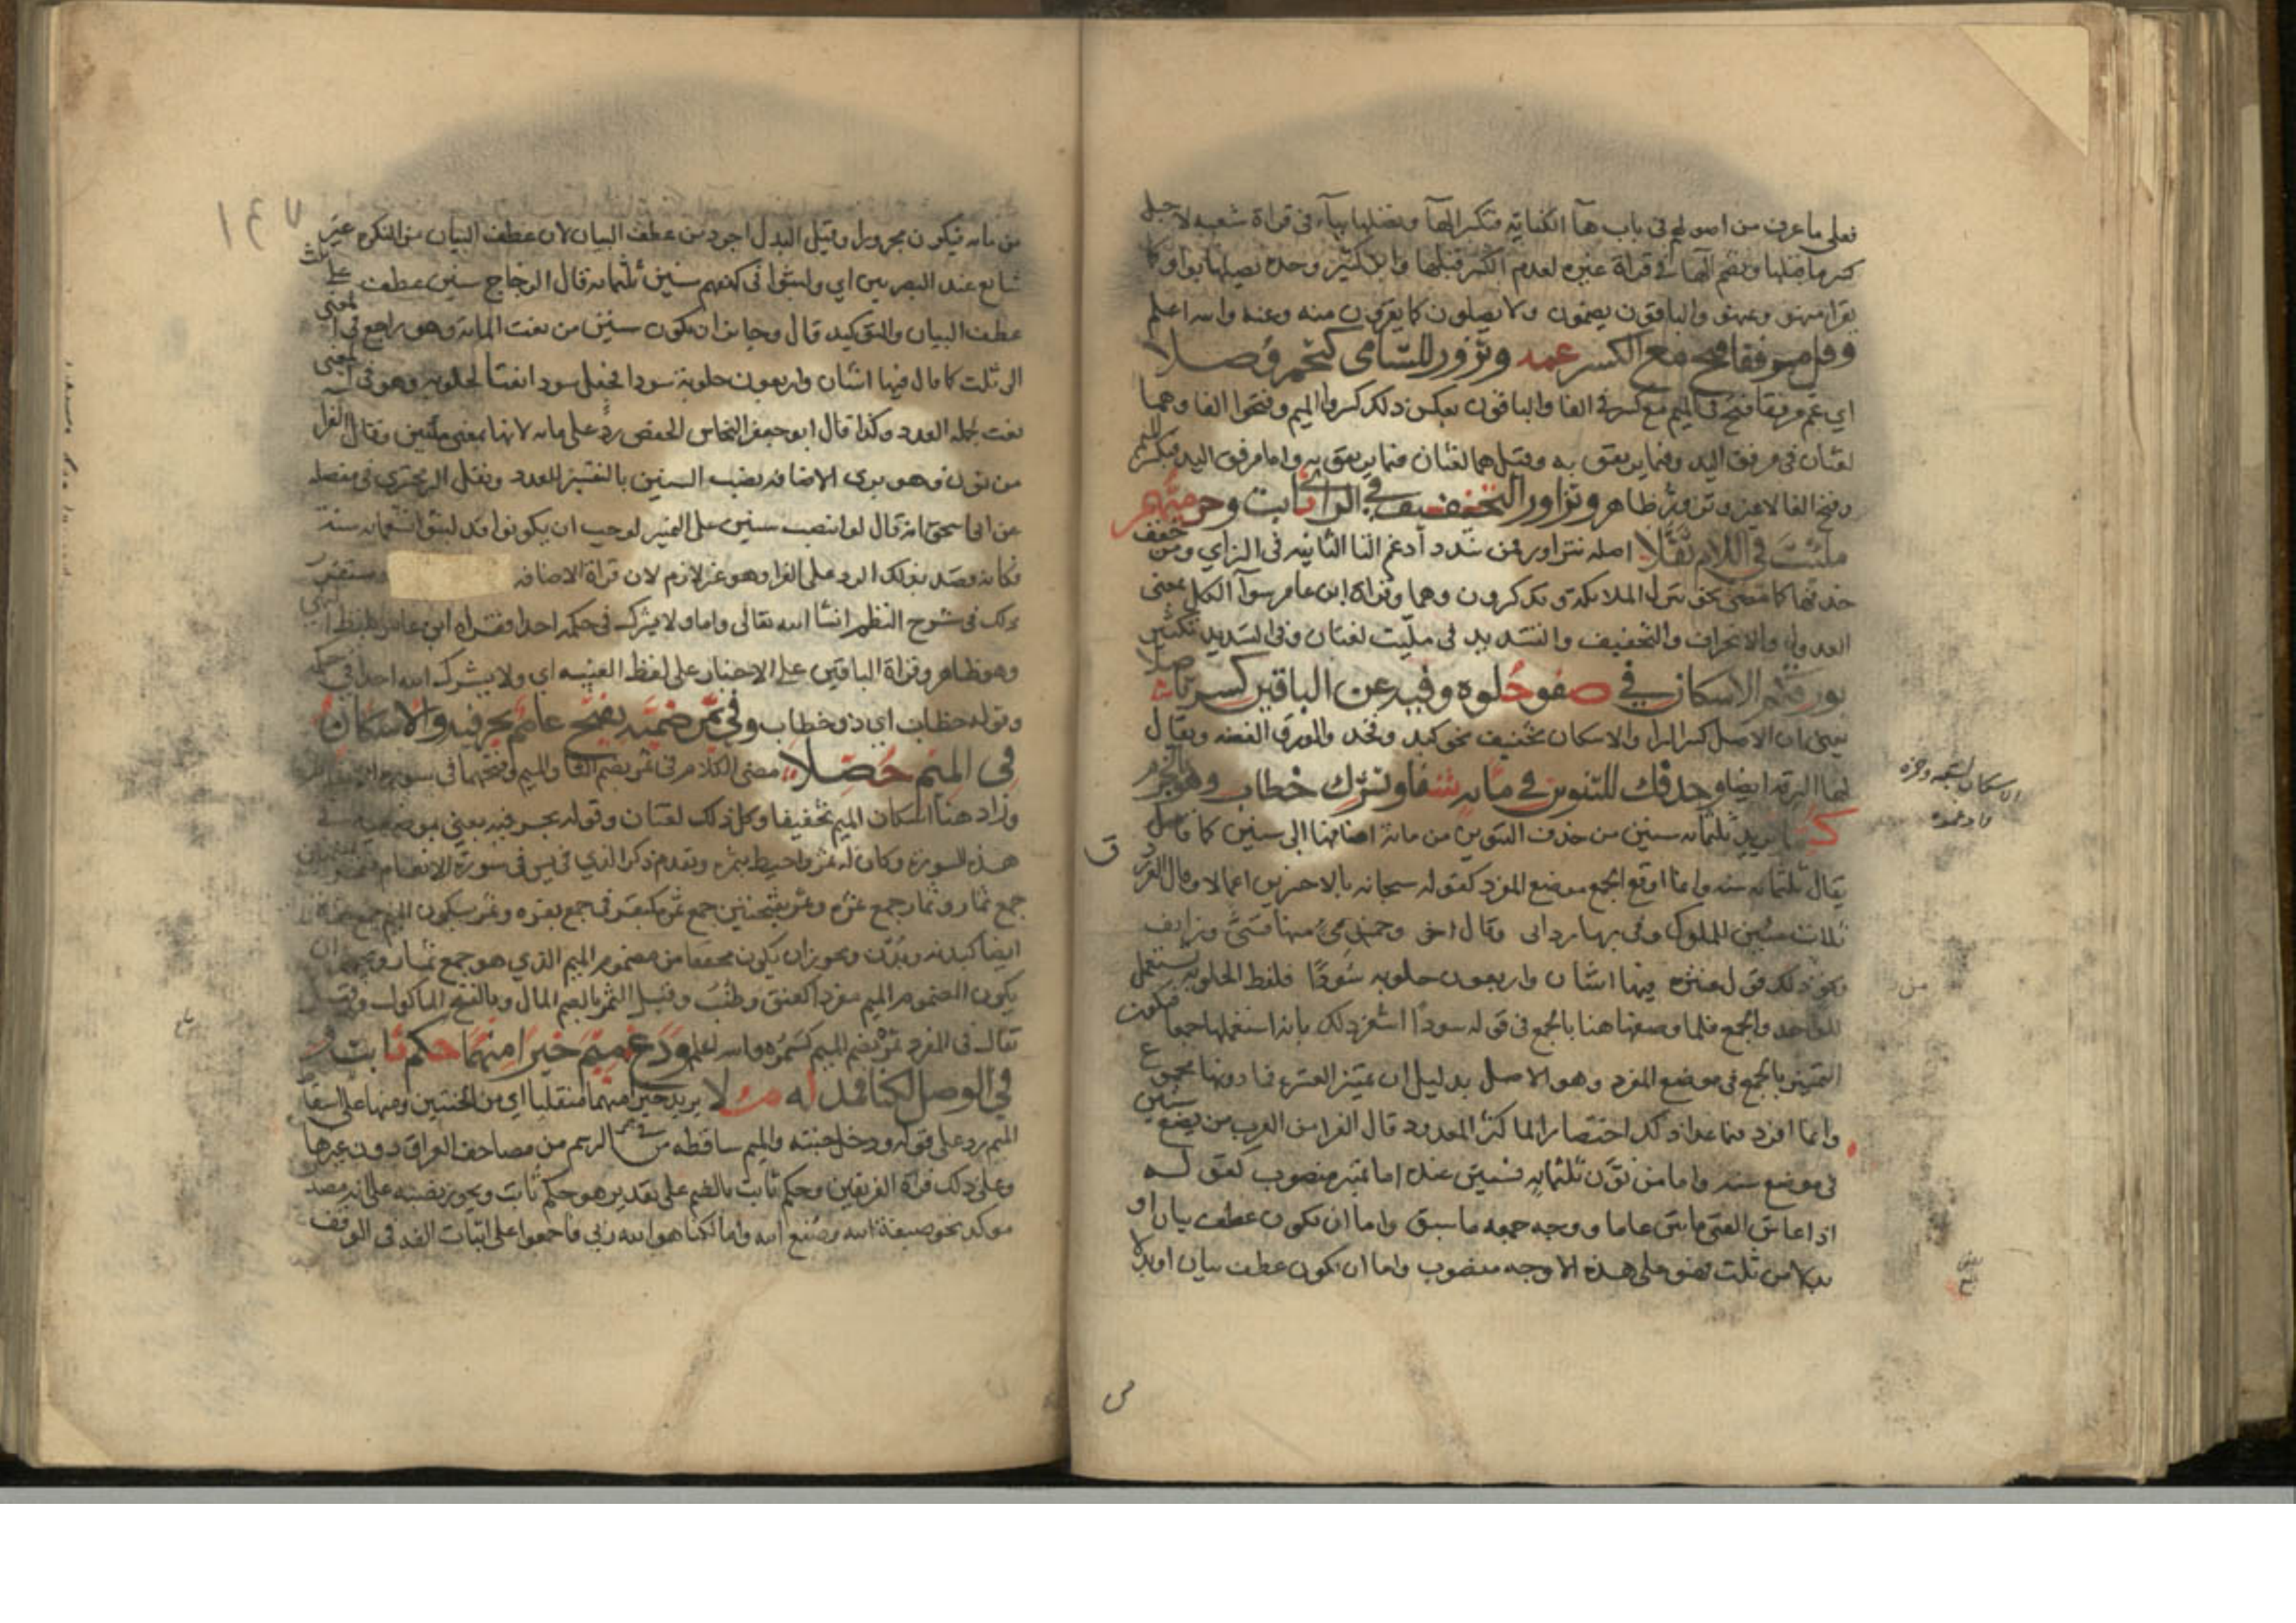 فعلى ما عرف من اصولهم في باب هآ الكناية فتكسر الهآ وبصلها بيآء في قراة شعبه لاجل
كسر ما قبلها وبضم الهآ في قراة غيره لعدم الكسر قبلها وابن كثير وحده يصلها بواو كما
يقرا منهو وعنهو والباقون يضمون ولا يصلون كما يقرون منه وعنه والله اعلم
وقل مرفقا فتح مع الكسر عمه وتزور للشامي كتحمر وصلا
اي عم مرفقا فتح في الميم مع كسر في الفا والباقون بعكس ذلك كسروا الميم وفتحوا الفا وهما
لغتان في مرفق اليد وفيما يرتفق به وقيل هما لغتان فيما يرتفق به واما مرفق اليد فبكسر الميم
وفتح الفا لاغير وتزور ظاهر وتزاور التخفيف في الزاي ثابت وحرميهم
ملئت في اللام ثقلا اصله تتزاور فمن شدد أدغم التا الثانيه في الزاي ومن خفف
حذفها كما مضى نحو تنزل الملائكة وتذكرون وهما وقراة ابن عامر سوآ الكل بمعنى
العدول والانحراف والتخفيف والتشديد في ملئت لغتان وفي التشديد تكثير
بورقكم الاسكان في صفو حلوه وفيه عن الباقين كسر تأصلا
يعني ان الاصل كسر الرا والاسكان تخفيف نحو كبد وفخذ والورق الفضه ويقال
لها الرقه ايضا وحذفك للتنوين في مايه شفا وتشرك خطاب وهو بالجزم
كملا يريد ثلثمايه سنين من حذف التنوين من مائة اضافها الى سنين كما قال
يقال ثلثمايه سنه وانما اوقع الجمع موضع المفرد كقوله سبحانه بالاخسرين اعمالا وقال الفرزدق
ثلاث مئين للملوك وفى بها ردائي وقال اخر وخمس مئ منها قسي وزائف
ونحو ذلك قول عنتره فيها اثنتان واربعون حلوبه سُودًا فلفظ الحلوبه يستعمل
للواحد والجمع فلما وصفها هنا بالجمع في قوله سودًا اشعر ذلك بانه استعملها جمعا فيكون
التمييز بالجمع في موضع المفرد وهو الاصل بدليل ان مميز العشره فما دونها مجموع
وانما افرد فيما عدا ذلك اختصارا لما كثر المعدود قال الفرا من العرب من يضع سنين
في موضع سنه واما من نوّن ثلثمايه فسنين عنده اما تمييز منصوب كقوله
اذا عاش الفتى مايتين عاما ووجه جمعه ما سبق واما ان يكون عطف بيان او
بدلا من ثلث فهو على هذه الاوجه منصوب واما ان يكون عطف بيان او بدلا
الاسكان لشعبه وحمزه
١٤٧
من مايه فيكون مجرورا وقيل البدل اجود من عطف البيان لان عطف البيان من النكره غير
شايع عند البصريين اي ولبثوا في كهفهم سنين ثلثمايه قال الزجاج سنين عطف على ثلث
عطف البيان والتوكيد قال وجايز ان يكون سنين من نعت الماية وهو راجع في المعنى
الى ثلث كما قال فيها اثنتان واربعون حلوبة سودا فجعل سودا نعتا لحلوبه وهو في المعنى
نعت لجملة العدد وكذا قال ابو جعفر النحاس الخفض ردٌ على مايه لانها بمعنى مئين وقال الفرا
من نون وهو يريد الاضافه نصب السنين بالتفسير للعدد ونقل الزمخشري في مفصله
عن ابي اسحق انه قال لو انتصب سنين على التمييز لوجب ان يكونوا قد لبثوا تسعمايه سنة
فكانه قصد بذلك الرد على الفرا وهو غير لازم لان قراة الاضافه
ذلك في شرح النظم انشا الله تعالى واما ولا يشرك في حكمه احدا فقراه ابن عامر بلفظ النهي
وهو ظاهر وقراة الباقين على الاخبار على لفظ الغيبه اي ولا يشرك الله احدا في حكمه
وقوله خطاب اي ذو خطاب وفي ثمر ضميه يفتح عاصم بحرفيه والاسكان
في الميم حصلا مضى الكلام في ثمر بضم الثا والميم وفتحهما في سورة الانعام
وزاد هنا اسكان الميم تخفيفا وكل ذلك لغتان وقوله بحرفيه يعني موضعيه في
هذه السورة وكان له ثمر واحيط بثمره وتقدم ذكر الذي في يس في سورة الانعام
جمع ثمار وثمار جمع ثمره وثمر بفتحتين جمع ثمره كبقر في جمع بقره وثمر بسكون الميم جمع ثمره
ايضا كبدنه وبُدْن ويجوز ان يكون مخففا من مضموم الميم الذي هو جمع ثمار ويجوز ان
يكون المضموم الميم مفردا كعنق وطنب وقيل الثمر بالضم المال وبالفتح الماكول وقيل
تقال في المفرد ثمُر بضم الميم كسمُره والله اعلم ودع ميم خيرا منهما حكم ثابت و
في الوصل لكنا فمد له ملا يريد خيرا منهما منقلبا اي من الجنتين ومنها على اسقاط
الميم رد على قوله ودخل جنته والميم ساقطه من الرسم من مصاحف العراق دون غيرها
وعلى ذلك قراة الفريقين وحكم ثابت بالضم على تقدير هو حكم ثابت ويجوز نصبه على انه مصدر
موكد نحو صبغة الله وصُنع الله واما لكنا هو الله ربي فاجمعوا على اثبات الفه في الوقف